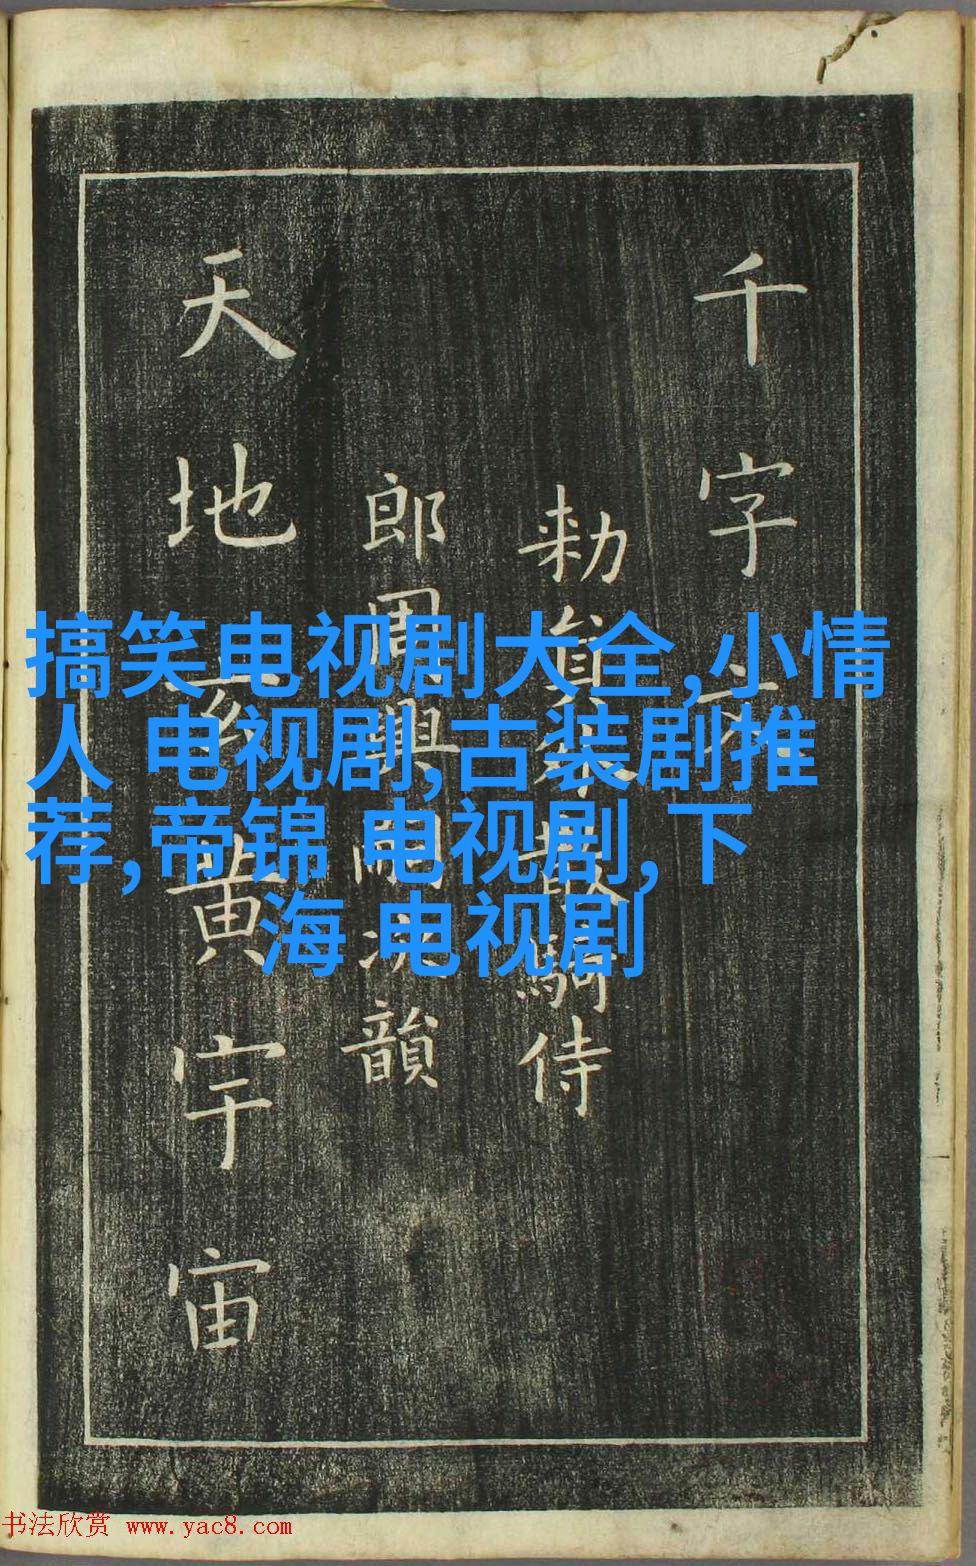 千字文
勑貟外散騎侍
郎周興嗣次韻
天地玄黃宇宙
搞笑电视剧大全,小情
人 电视剧,古装剧推
荐,帝锦 电视剧,下
海 电视剧
书法欣赏 www.yac8.com